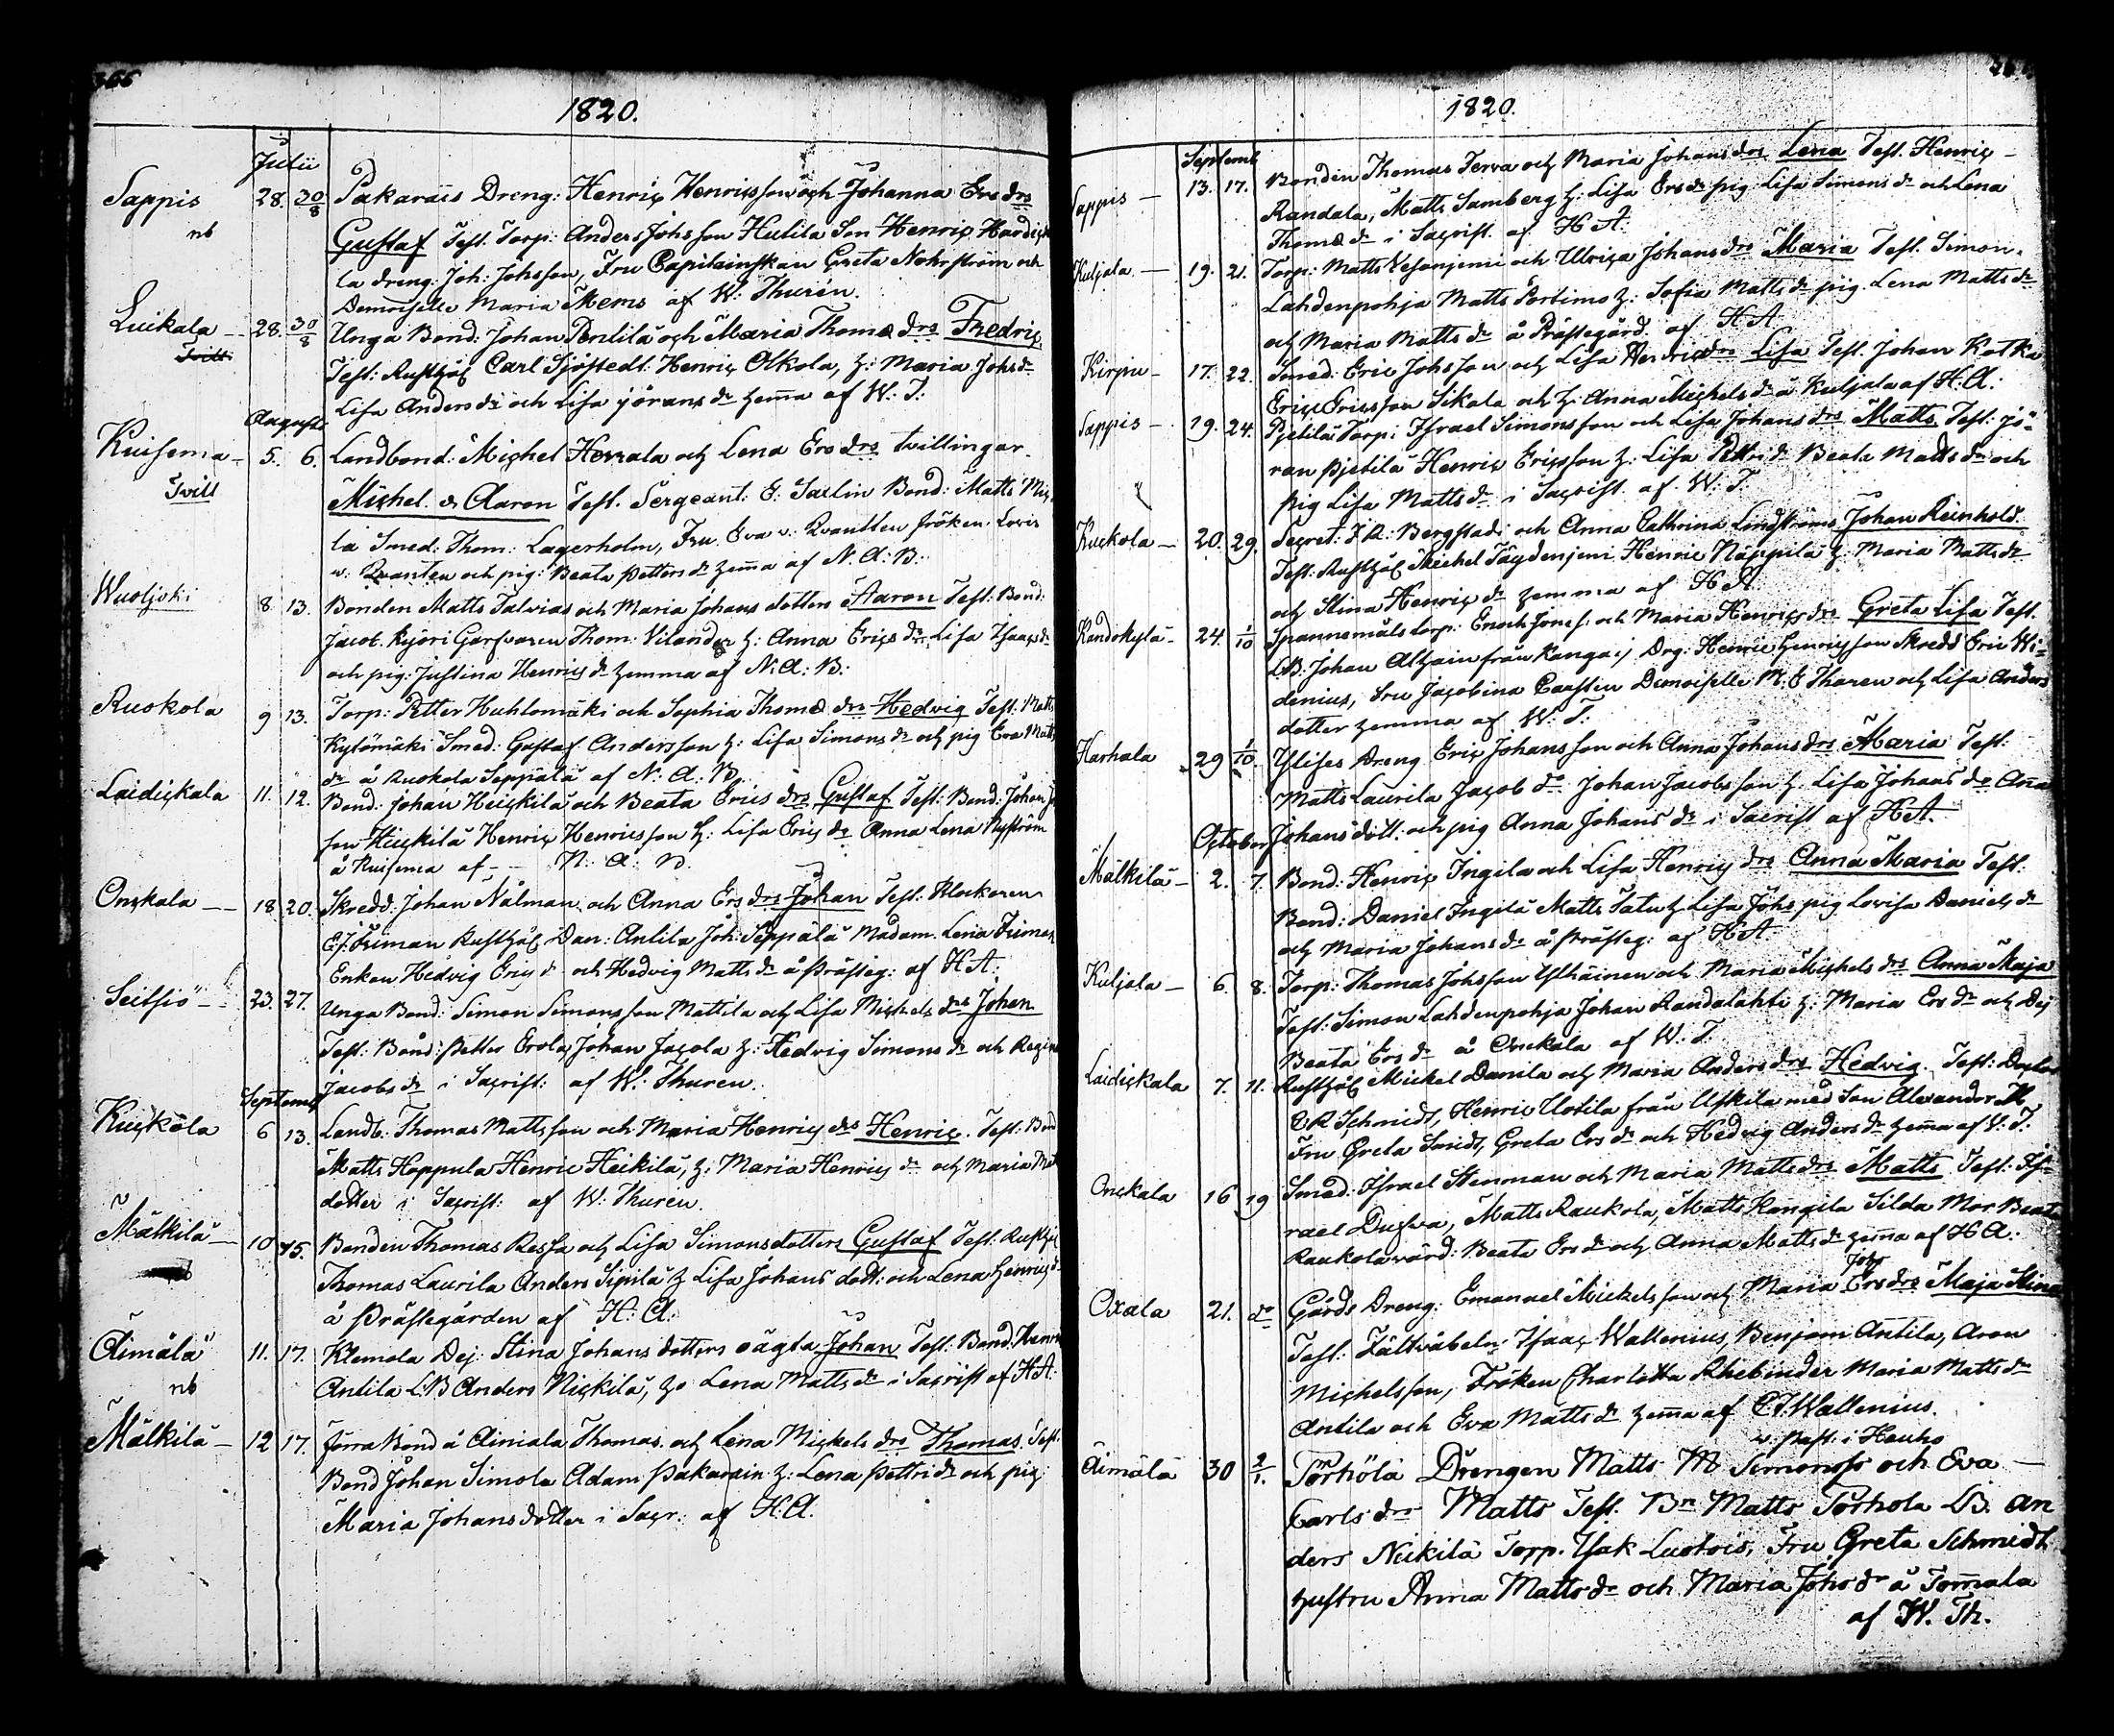 366
1820.
Julii
Sappis 28. 30/8 Pakarais Dreng: Henric Henricsson och Johanna Ers drs
nb Gustaf Test. Torp: Anders Johsson Hulila Son Henric Hardick
la dreng. Joh: Johsson, Fru Capitainskan Greta Nohrström och
Demoiselle Maria Mems af W: Thurén.
Luikala 28. 30/8 Unga Bond: Johan Pentilä och Maria Thomæ drs Fredric
Test: Rusthål Carl Sjöstedt. Henric Alkola, h: Maria Johs dr
Lisa Anders dr och Lisa jörans dr hema af W: T:
Augusti
Ruisema 5. 6. Landbond: Michel Herrala och Lena Ers drs tvillingar
Tvill Michel & Aaron Test. Sergeant: E: Saxlin Bond: Matts Mic
la Smed: Thom: Lagerholm, Fru Eva v: Qvantten fröken Lovis
v: Qvanten och pig: Beata Petters dr hema af N. A: B:
Wuoljoki 8 13. Bonden Matts Talvias och Maria Johans dotters Aaron Test: Bond:
Jacob Kyöri Garfvaren Thom: Vilander h: Anna Erics dr Lisa Isaacs dr
och pig: Justina Henrics dr hemma af N: A: B:
Ruokola 9 13. Torp: Petter Huhlomäki och Sophia Thomæ drs Hedvig Test: Matts
Kylömäki Smed: Gustaf Andersson h: Lisa Simons dr och pig Eva Matts
dr å Ruokola Seppälä af N: A: B.
Laidickala 11. 12. Bond: johan Heickilä och Beata Erics drs Gustaf Test: Bond: Johan
son Heickilä Henric Henricsson h: Lisa Erics dr Anna Lena Nyström
å Ruisema af N: A: B.
Onckala 18 20. Skredd: Johan Nålman och Anna Ers drs Johan Test: Klockaren
E: J: Friman Rusthål Dan: Antila Joh: Seppälä Madam Lena Friman
Enkan Hedvig Erics dr och Hedvig Matts dr å Prästeg: af H A:
Seitsiö 23. 27. Unga Bond: Simon Simonsson Mattila och Lisa Michels drs Johan
Test: Bond: Petter Erola Johan Jacola h: Hedvig Simons dr och Regina
Jacobs dr i Sacrist: af W: Thuren.
Septemb
Kuckola 6 13. Landb: Thomas Mattsson och Maria Henrics drs Henric. Test: Bond
Matts Hoppula Henric Heikilä, h: Maria Henrics dr och Maria Mat
dotter i Sacrist: af W: Thuren.
Mälkilä 10 15. Bonden Thomas Ressa och Lisa Simonsdotters Gustaf Test: Rusthål
Thomas Laurila Anders Sipilä h Lisa Johans dott: och Lena Henrics dr
å Prästegården af H: A:
Äimälä 11. 17. Klemola Dej: Stina Johans dotters oägta Johan Test: Bond: Henric
nb Antila L:B Anders Nickilä, ho Lena Matts dr i Sacrist af H A:
Mälkilä 12 17. Jorra Bond å Äimälä Thomas och Lena Michels drs Thomas Test:
Bond Johan Simola Adam Pakarain h: Lena Pettri dr och pig
Maria Johansdotter i Sacr: af H. A.
1820.
Septemb
Sappis 13. 17. Bonden Thomas Terva och Maria Johans drs Lena Test. Henric
Randala, Matts Samberg h: Lisa Ers dr pig Lisa Simons dr och Lena
Thomæ dr i Sacrist. af H A:
Kuljala 19. 21. Torp: Matts Vesanjemi och Ulrica Johans drs Maria Test. Simon
Lahdenpohja Matts Portimo h: Sofia Matts dr pig. Lena Matts dr
och Maria Matts dr å Prästegård. af H A
Kirpiu 17. 22. Smed: Eric Johsson och Lisa Henrics drs Lisa Test. Johan Kotka
Eric Ericsson Sikala och h. Anna Michels dr å Kuljala af H. A:
Sappis 19. 24. Pjetilä Torp: Israel Simonsson och Lisa Johans drs Matts. Test: jö
ran Pjetilä Henric Ericsson h: Lisa Pettri dr Beata Matts dr och
pig Lisa Matts dr i Sacrist. af W. T.
Kuckola 20. 29. Secret: J R: Bergstadi och Anna Cathrina Landströms Johan Reinhold.
Test: Rusthål Michel Täydenjemi Henric Näppilä h: Maria Matts dr
och Stina Henrics dr hemma af H A:
Kandokylä 24 1/10 Spannemåls torp: Enoch Jones: och Maria Henrics drs Greta Lisa Test.
LB. Johan Alhain från Kanga: Drg: Henric Henricsson Skredd Eric Wi
denius, Fru Jacobina Paastin Demoiselle M: E Tharen och Lisa Anders
dotter hemma af W: T:
Harhala 29 1/10. Ylises Dreng Eric Johansson och Anna Johans drs Maria Test:
Matts Laurila Jacob do Johan Jacobsson h. Lisa Johans dr Ana
Johansdott. och pig Anna Johans dr i Sacrist af H A.
October
Mälkilä 2. 7. Bond: Henric Ingila och Lisa Henrics drs Anna Maria Test:
Bond: Daniel Ingilä Matts Tatu h Lisa Johs pig Lovisa Daniels dr
och Maria Johans dr å Prästeg: af H A
Kuljala 6. 8. Torp: Thomas Johsson Ylhäinen och Maria Michels drs Anna Maja
Test: Simon Lahdenpohja Johan Randalahti h: Maria Ers dr och Dej
Beata Ers dr å Onckala af W: T:
Laidickala 7. 11. Rusthål Mickel Danila och Maria Anders drs Hedvig. Test:
C R Schmidt, Henric Uotila från Uskila med Son Alexander H
Fru Greta Smidt, Greta Ers dr och Hedvig Anders dr hema af V. T.
Onckala 16 19 Smed: Israel Stenman och Maria Matts drs Matts Test: Is
rael Dufva, Matts Raukola, Matts Kangila Silda Mor Beata
Raukola värd: Beata Ers dr och Anna Matts dr hema af H A:
Joh
Oxala 21. do Gårds Dreng: Emanuel Mickelsson och Maria Ers drs Maja Stina
Test: Fältväbeln Isaac Wallenius, Benjam Antila, Aron
Michelsson, Fröken Charlotta Rhebinder Maria Matts dr
Antila och Eva Matts dr hema af C. J. Wallenius.
v: Past: i Hauho
Äimälä 30 2/1. Pörhölä Drengen Matts M Simonss och Eva
Carls drs Matts Test. Bn Matts Pörhola LB. An
ders Nickilä Torp. Isak Luotois, Fru Greta Schmidt
hustru Anna Matts dr och Maria Johs dr å Tomala
af W. Th.